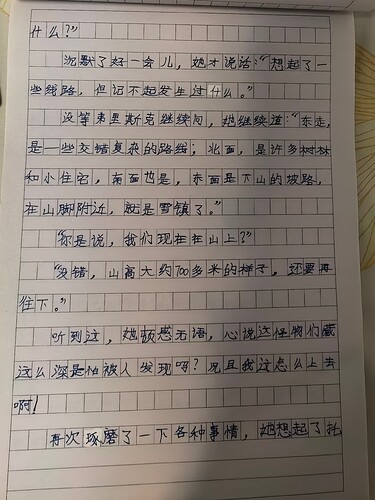 什么？”
沉默了好一会儿，她才说话：“想起了一
些线路，但记不起发生过什么。”
没等束里斯克继续问，她继续道：“东走，
是一些交错复杂的路线；北面，是许多树林
和小住宅，南面也是，东面是下山的坡路，
在山脚附近，就是雪镇了。”
“你是说，我们现在在山上？”
“没错，山高大约700多米的样子，还要再
往下。”
听到这，她顿感无语，心说这怪物们藏
这么深是怕被人发现吗？况且我这怎么上去
啊！
再次琢磨了一下各种事情，她想起了托